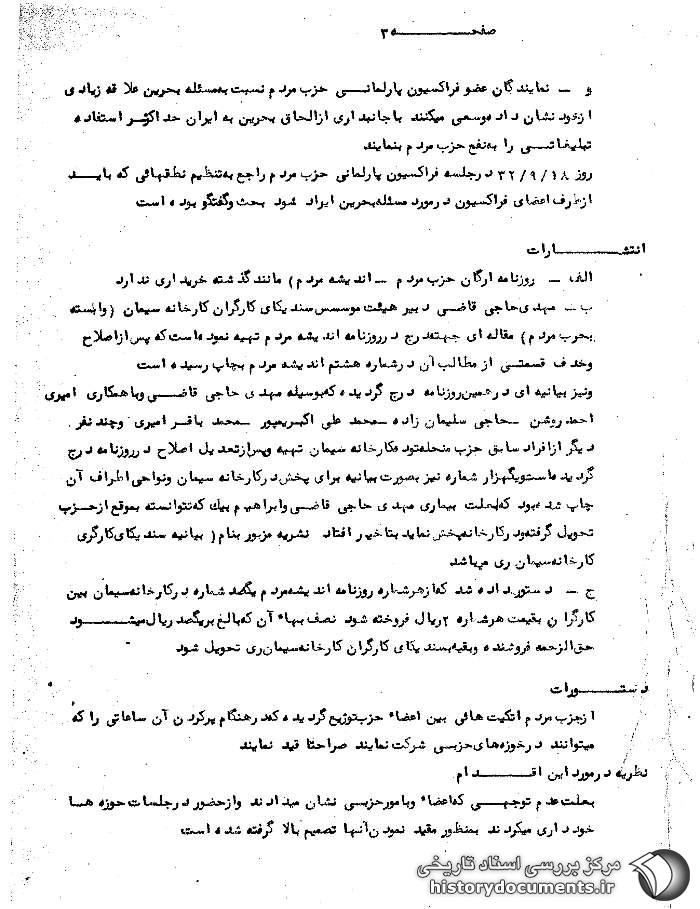 صفحـــــــه ۳
و ــ نمایندگان عضو فراکسیون پارلمانــی حزب مردم نسبت به مسئله بحرین علاقه زیادی
ازخود نشان داده وسعی میکنند با جانبداری ازالحاق بحرین به ایران حداکثر استفاده
تبلیغاتــی را به نفع حزب مردم بنمایند
روز ۳۲/۹/۱۸ درجلسه فراکسیون پارلمانی حزب مردم راجع به تنظیم نطقهائی که بایــد
ازطرف اعضای فراکسیون درمورد مسئله بحرین ایراد شود بحث وگفتگو بوده است
انتشـــــــارات
الف ــ روزنامه ارگان حزب مردم ــ اندیشه مردم) مانند گذشته خریداری ندارد
ب ــ مهدی حاجی قاضی دبیر هیئت موسس سندیکای کارگران کارخانه سیمان (وابسته
بحزب مردم) مقاله ای جهت درج درروزنامه اندیشه مردم تهیه نموده است که پس ازاصلاح
وحذف قسمتی از مطالب آن درشماره هشتم اندیشه مردم بچاپ رسیده است
ونیز بیانیه ای درهمین روزنامه درج گردیده که بوسیله مهدی حاجی قاضــی وباهمکاری امیری
احمد روشن ــ حاجی سلیمان زاده ــ محمد علی اکبرپور ــ محمد باقر امیری وچند نفر
دیگر ازافراد سابق حزب منحله توده کارخانه سیمان تهیه وپس ازتعدیل اصلاح درروزنامه درج
گردیده است ویکهزار شماره نیز بصورت بیانیه برای پخش درکارخانه سیمان ونواحی اطراف آن
چاپ شده بود که بعلت بیماری مهدی حاجی قاضــی وابراهیم بیك که نتوانسته بموقع ازحزب
تحویل گرفته ودرکارخانه پخش نماید بتاخیر افتاد نشریه مزبور بنام ( بیانیه سندیکای کارگری
کارخانه سیمان ری میباشد
ج ــ دستورداده شد که ازهرشماره روزنامه اندیشه مردم یکصد شماره درکارخانه سیمان بین
کارگران بقیمت هرشماره ۲ریال فروخته شود نصف بهاء آن که بالغ بریکصد ریال میشـــــود
حق الزحمه فروشنده وبقیه بسندیکای کارگران کارخانه سیمان ری تحویل شود
دستــــــورات
ازحزب مردم اتکیت هائی بین اعضاء حزب توزیع گردیده که درهنگام پرکردن آن ساعاتی را که
میتوانند درحوزه های حزبـی شرکت نمایند صراحتا قید نمایند
نظریه درمورد این اقــــــدام
بعلت عدم توجهــی که اعضاء وبامورحزبـی نشان میدادند وازحضور درجلسات حوزه هــا
خودداری میکردند بمنظور مقید نمودن آنها تصمیم بالا گرفته شده است
مرکز بررسی اسناد تاریخی
historydocuments.ir